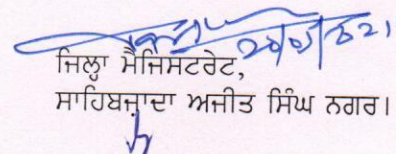 ਜਿਲ੍ਹਾ ਮੈਜਿਸਟਰੇਟ,
ਸਾਹਿਬਜ਼ਾਦਾ ਅਜੀਤ ਸਿੰਘ ਨਗਰ।